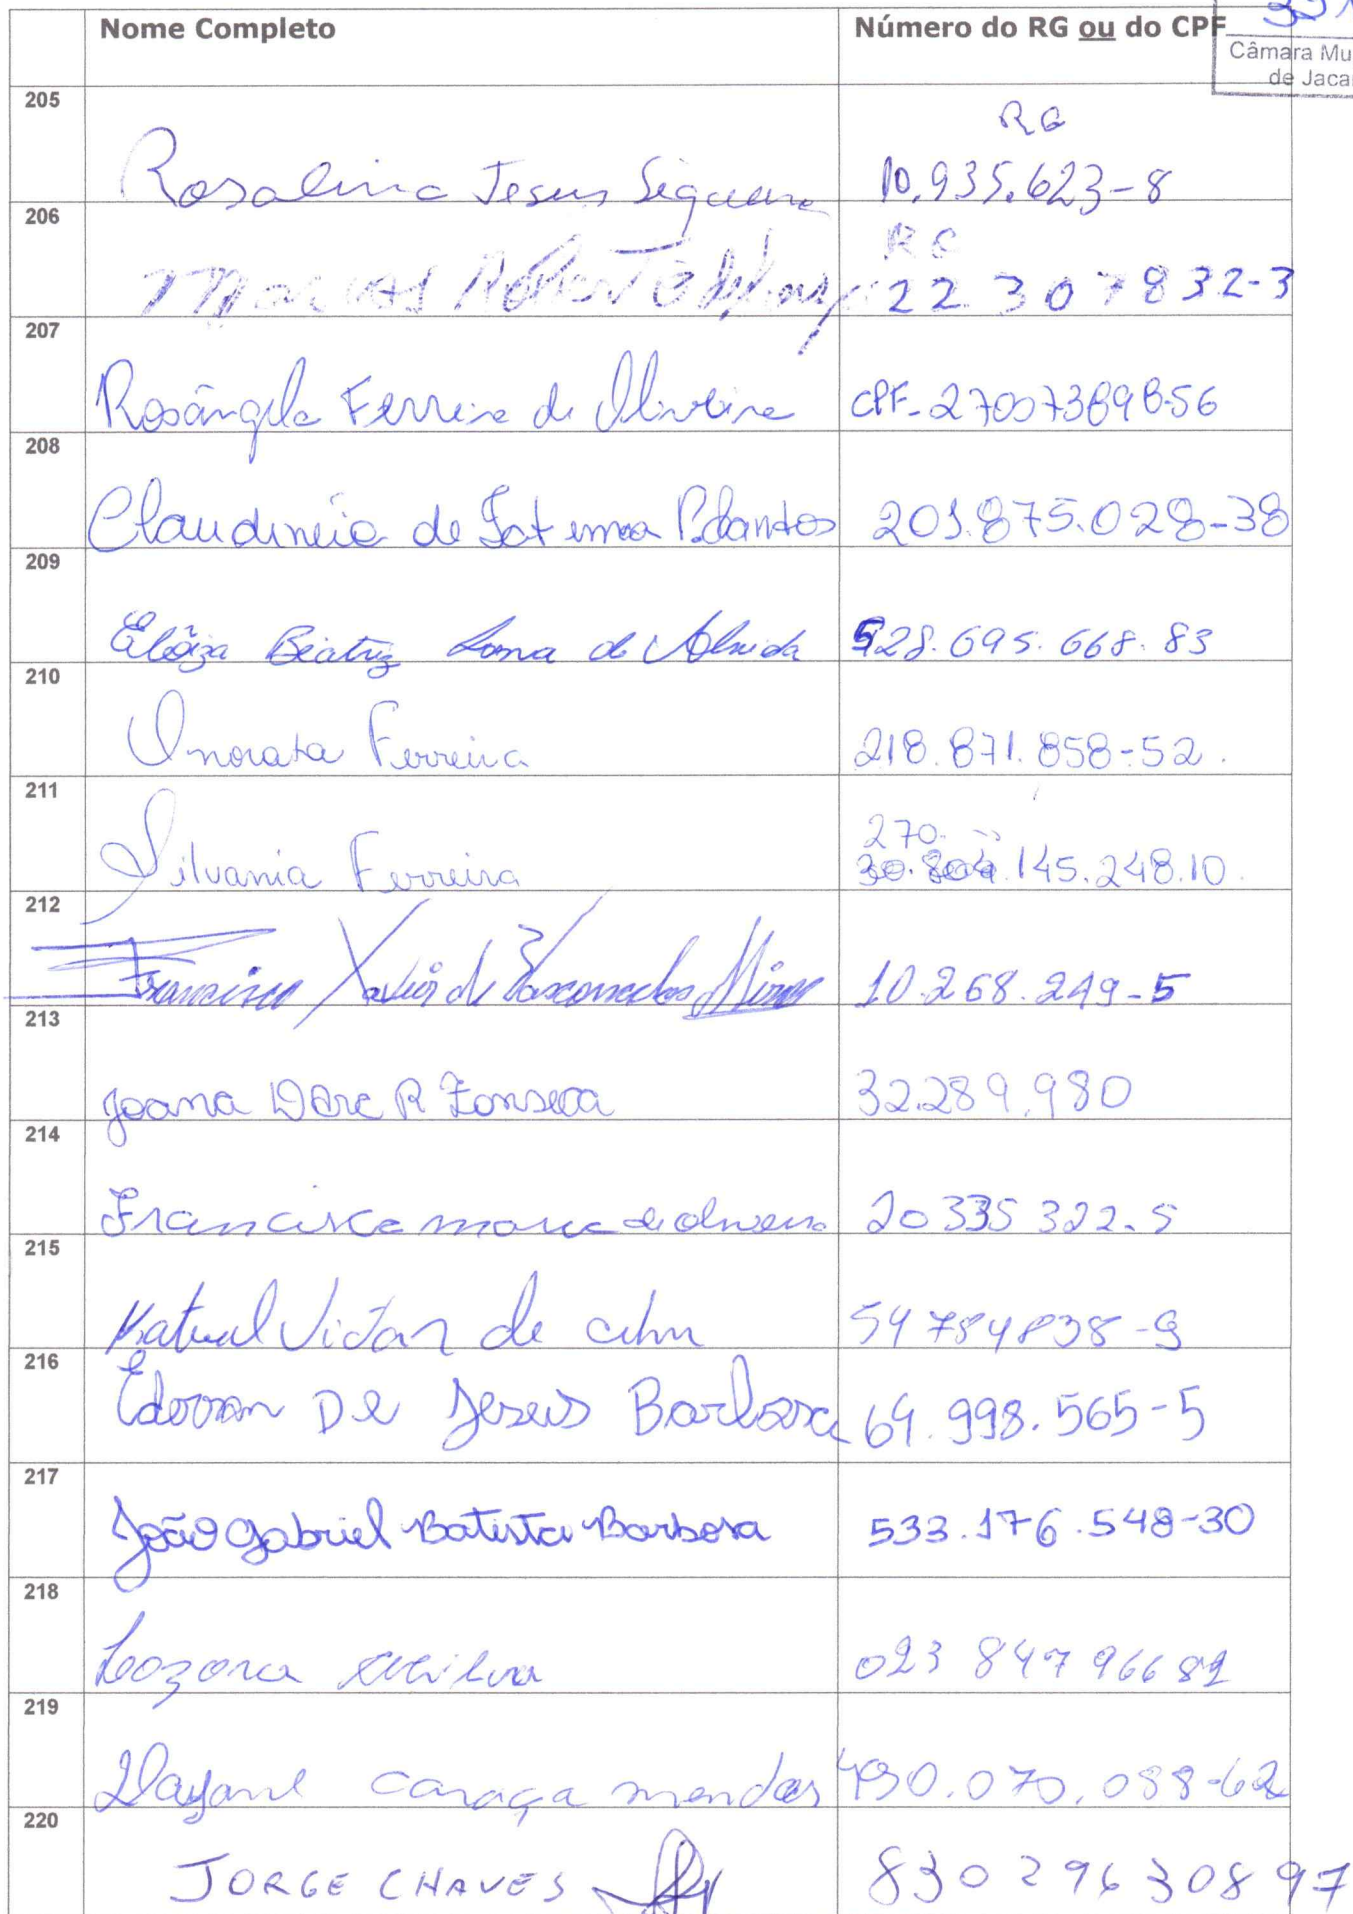 Nome Completo Número do RG ou do CPF
Câmara Mu
de Jaca
205
RG
Rosalina Jesus Siqueira 10.935.623-8
206
RG
Marcos Roberto 22 307832-3
207
Rosângela Ferreira de Oliveira CPF-27007389856
208
Claudineia de Fatima P. dantos 201.875.028-38
209
Elóiza Beatriz Lama de Almeida 528.695.668.83
210
Onorata Ferreira 218.871.858-52.
211
270.
Silvania Ferreira 145.248.10.
212
Francisco Xavier de Vasconcelos 10.268.249-5
213
Joana Darc R Fonseca 32.289.980
214
Francisca maria de oliveira 20335322-5
215
de 54784838-9
216
De Jesus Barbosa 64.998.565-5
217
João Gabriel Batista Barbosa 533.176.548-30
218
023 847 96682
219
Dayane caraça mendes 490.070.088-62
220
JORGE CHAVES 830 296 308 97